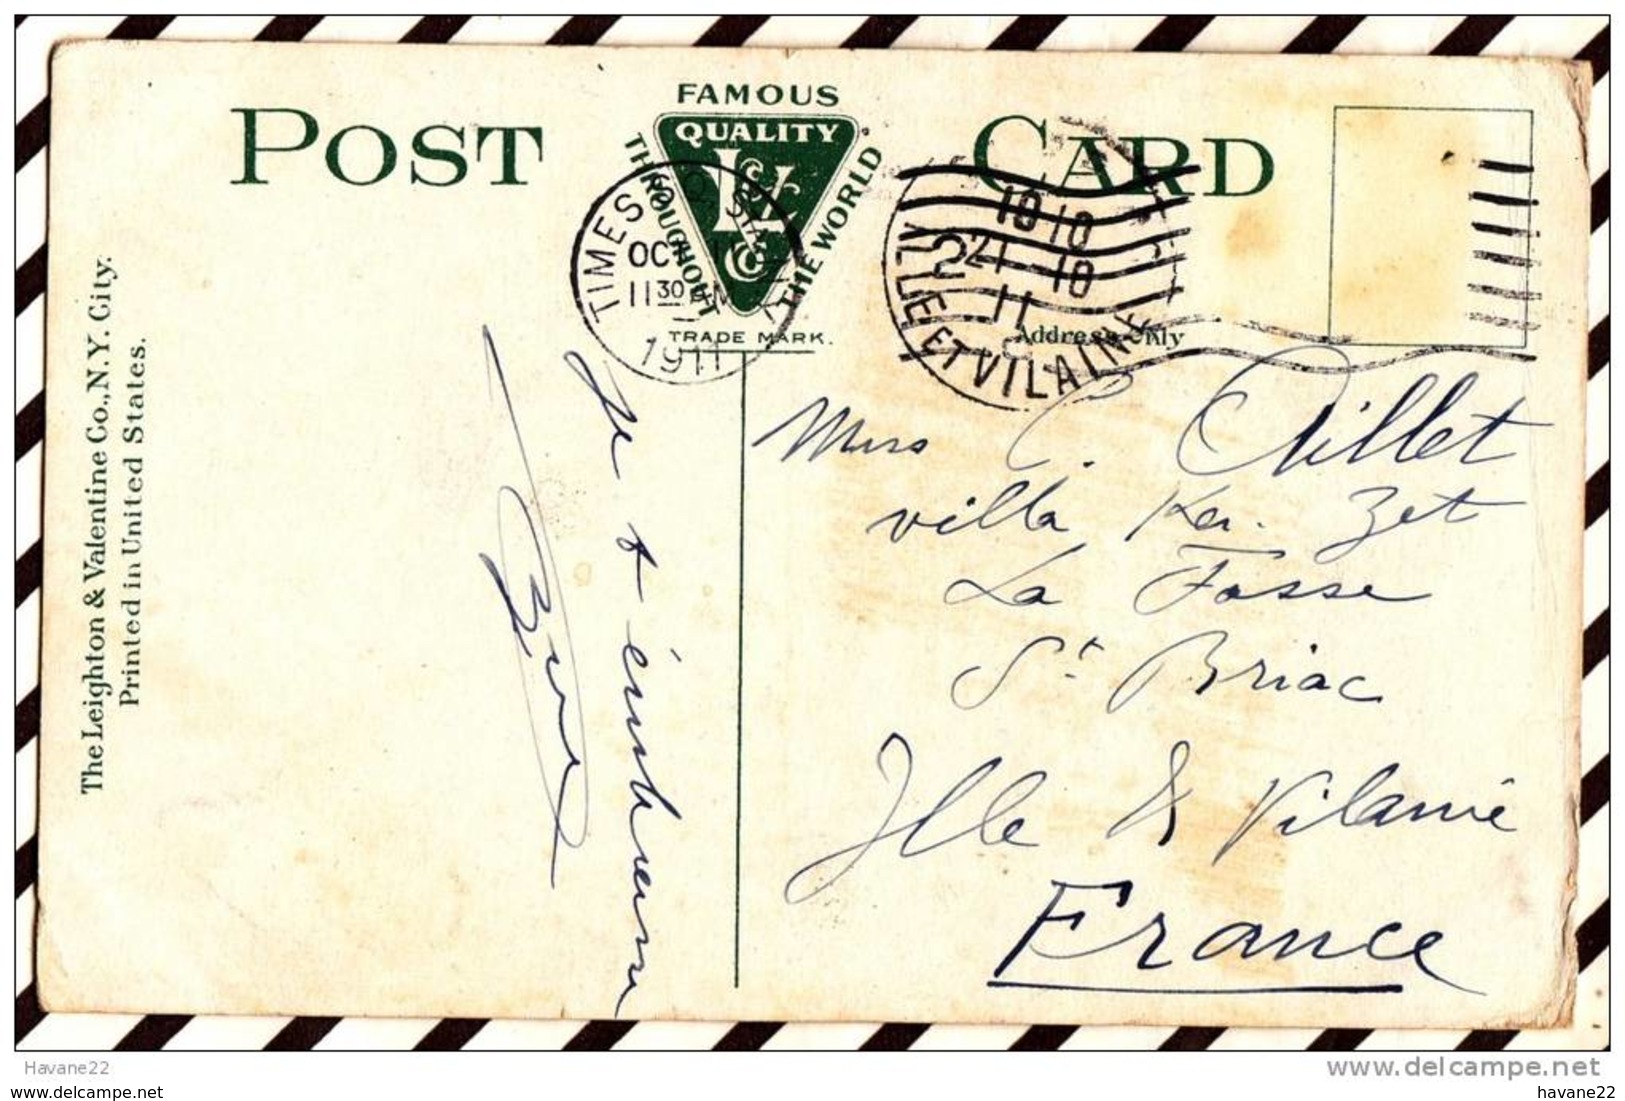 POST CARD
FAMOUS
QUALITY
L & V Co
THROUGHOUT THE WORLD
TRADE MARK.
Address Only
TIMES SQ. STA.
OCT 11
11 30 AM
1911
1810
21 10
11
ILLE ET VILAINE
The Leighton & Valentine Co., N.Y. City.
Printed in United States.
Je t'embrasse
Miss C.
villa Ker. Zet
La Fosse
St. Briac
Ille & Vilaine
France
Havane22
www.delcampe.net
havane22
havane22